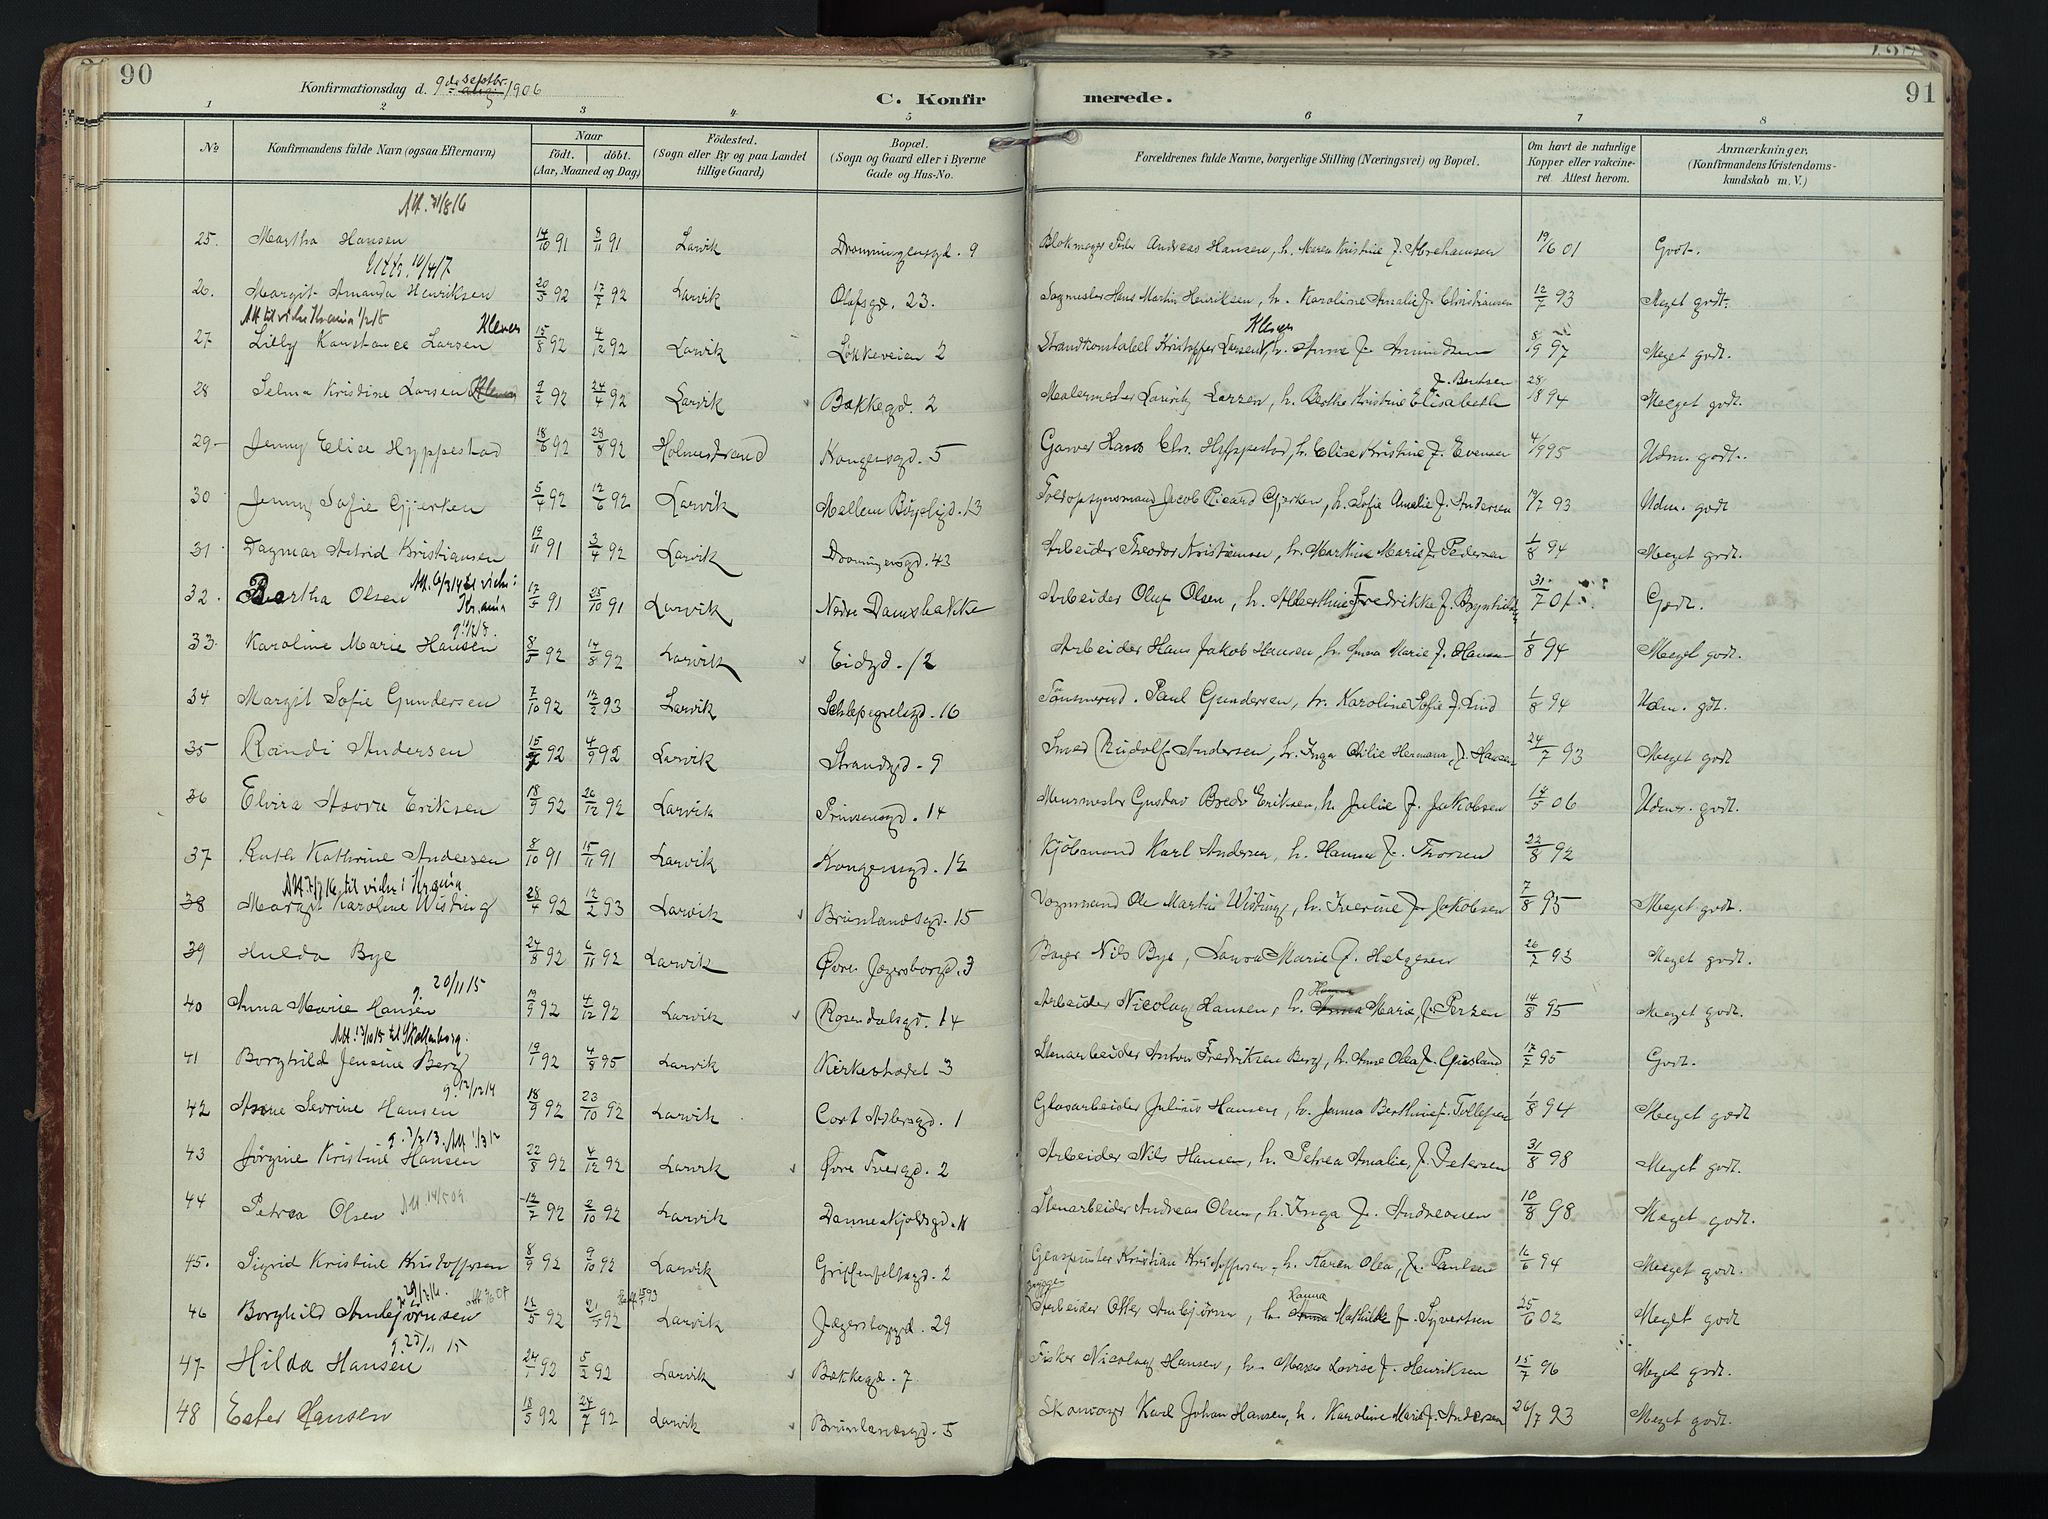 90
Konfirmationsdag d. 9de septbr. 1906
C. Konfirmerede.
91
1 2 3 4 5 6 7 8
No
Konfirmandens fulde Navn (ogsaa Efternavn)
Naar
födt. döbt.
(Aar, Maaned og Dag)
Födested.
(Sogn eller By og paa Landet tillige Gaard)
Bopæl.
(Sogn og Gaard eller i Byerne Gade og Hus-No.
Forældrenes fulde Navne, borgerlige Stilling (Næringsvei) og Bopæl.
Om havt de naturlige Kopper eller vakcineret. Attest herom.
Anmærkninger.
(Konfirmandens Kristendomskundskab m. V.)
Att. 31/8 16
25. Martha Hansen 14/10 91 8/11 91 Larvik Dronningensgd. 9 Blokmager Peder Andreas Hansen, h. Maren Kristine f. Abrahamsen 19/6 01 Godt.
Utts. 14/4 17
26. Margit Amanda Henriksen 20/5 92 17/7 92 Larvik Olafsgd. 23. Sagmester Hans Martin Henriksen, h. Karoline Amalie f. Christiansen 12/7 93 Meget godt.
Klever
27 Lilly Konstance Larsen 15/8 92 4/12 92 Larvik Løkkeveien 2 Strandkonstabel Kristoffer Larsen Klever, h. Anna f. Amundsen 8/9 97 Meget godt.
28 Selma Kristine Larsen 9/2 92 24/4 92 Larvik Bakkegd. 2 Malermester Lauritz Larsen, h. Berthe Kristine Elisabeth f. Berntsen 28/8 94 Meget godt.
29 Jenny Elise Hyppestad 18/6 92 28/8 92 Holmestrand Kongensgd. 5 Garver Hans Chr. Hyppestad, h. Elise Kristine f. Evensen 4/9 95 Udm. godt.
30 Jenny Sofie Gjerken 5/4 92 12/6 92 Larvik Mellem Bøgeligd. 13 Toldopsynsmand Jacob Picard Gjerken, h. Sofie Amalie f. Andersen 19/7 93 Udm. godt
31 Dagmar Astrid Kristiansen 19/11 91 3/4 92 Larvik Dronningensgd. 43 Arbeider Theodor Kristiansen, h. Marthine Marie f. Pedersen 1/8 94 Meget godt.
32. Bertha Olsen 17/5 91 25/10 91 Larvik Nedre Damsbakke Arbeider Oluf Olsen, h. Alberthine Fredrikke f. Brynhildsen 31/7 01 Godt.
33. Karoline Marie Hansen 8/5 92 14/8 92 Larvik Eidgd. 12 Arbeider Hans Jakob Hansen, h. Anna Marie f. Hansen 1/8 94 Meget godt.
34 Margit Sofie Gundersen 7/10 92 12/2 93 Larvik Schlepegrelsgd. 16 Tömmermd. Paul Gundersen, h. Karoline Sofie f. Lind 1/8 94 Udm. gdt.
35 Randi Andersen 15/7 92 4/9 92 Larvik Strandgd. 9 Smed Rudolf Andersen, h. Inga Otilie Hermana, f. Hansen 24/7 93 Meget godt
36 Elvira Asora Eriksen 18/9 92 26/12 92 Larvik Prinsensgd. 14 Murmester Gustav Bredo Eriksen, h. Julie f. Jakobsen 18/5 06 Udm. godt.
37 Ruth Kathrine Andersen 8/10 91 15/11 91 Larvik Kongensgd. 12 Kjöbmand Karl Andersen, h. Hanna f. Thorsen 22/8 92
38 Margit Karoline Wisting 28/4 92 12/2 93 Larvik Brunlandsgd. 15 Vognmand Ole Martin Wisting, h. Iverine f. Jakobsen 7/8 95 Meget godt.
39 Hulda Bye 24/8 92 6/11 92 Larvik Øvre Jegersborgd. 3 Bager Nils Bye, Lovisa Marie f. Helgesen 26/7 93 Meget godt.
g. 20/11 15
40 Anna Marie Hansen 19/9 92 4/12 92 Larvik Rosendalsgd. 14 Arbeider Nicolay Hansen, h. Hanna Marie, f. Persen 14/8 95 Meget godt.
41 Borghild Jensine Berg 19/1 92 4/8 95 Larvik Kirkestrædet 3 Stenarbeider Anton Fredriksen Berg, h. Anne Olea f. Gusland 17/7 95 Godt.
g. 12/12 14
42 Anne Sevrine Hansen 18/9 92 23/10 92 Larvik Cort Adlersgd. 1 Glasarbeider Julius Hansen, h. Jenna Berthine f. Tollefsen 1/8 94 Meget godt
43 Jørgine Kristine Hansen 22/8 92 4/12 92 Larvik Øvre Tvergd. 2 Arbeider Nils Hansen, h. Petrea Amalie, f. Petersen 31/8 98 Meget godt.
44 Petrea Olsen Att. 14/5 09 12/7 92 2/10 92 Larvik Danneskjoldsgd. 11 Stenarbeider Andreas Olsen, h. Inga f. Andreasen 10/8 98 Meget godt.
45. Sigrid Kristine Kristoffersen 8/9 92 9/10 92 Larvik Griffenfeltsgd. 2 Glaspuster Kristian Kristoffersen, h. Karen Olea, f. Paulsen 16/6 94 Meget godt.
46 Borghild Arnbjørnsen 12/5 92 Larvik Jegersborgd. 29 Arbeider Otter Arnbjørnsen, h. Hanna Mathilde f. Syvertsen 25/6 02 Meget godt
47 Hilda Hansen 24/1 92 5/2 92 Larvik Bakkegd. 7. Fisker Nicolay Hansen, h. Maren Lovise f. Henriksen 15/7 96 Meget godt.
48 Ester Hansen 18/5 92 24/7 92 Larvik Brunlandsgd. 5 Skomager Karl Johan Hansen, h. Karoline Marie f. Andersen 26/7 93 Meget godt.